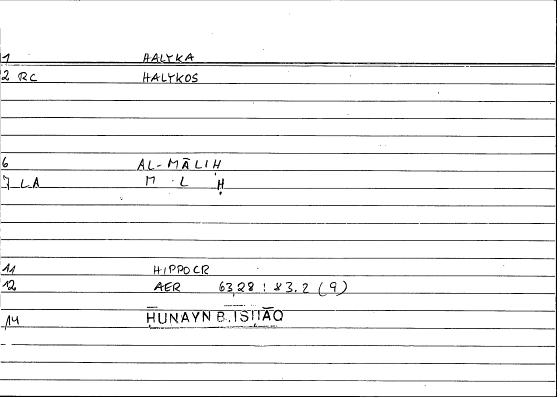 1 HALYKA
2 RC HALYKOS
6 AL-MĀLIḤ
7 LA M L Ḥ
11 HIPPOCR
12 AER 63,28 : 83.2 (9)
14 ḤUNAYN B. ISḤĀQ